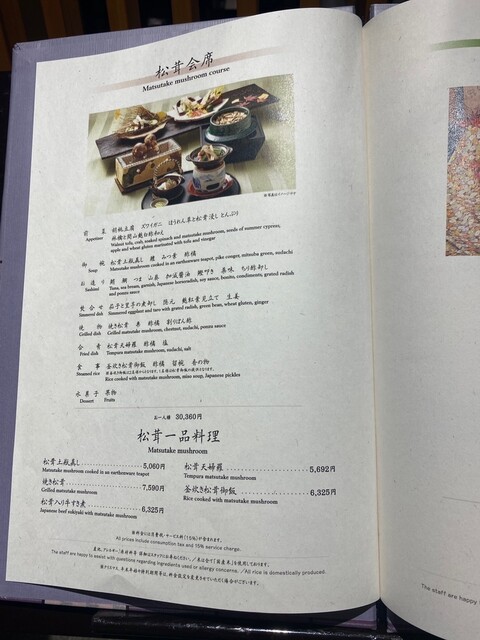 松茸会席
Matsutake mushroom course
前菜 胡桃豆腐 ズワイガニ ほうれん草と松茸浸し とんぶり
Appetizer
林檎と岡山麩白和え
Walnut tofu, crab, soaked spinach and matsutake mushroom, seeds of summer cypress,
apple and wheat gluten marinated with tofu and vinegar
御椀 松茸土瓶蒸し 鱧 みつ葉 酢橘
Soup Matsutake mushroom cooked in an earthenware teapot, pike conger, mitsuba green, sudachi
お造り 鮪 鯛 つま 山葵 加減醤油
Sashimi Tuna, sea bream, garnish, Japanese horseradish, soy sauce, bonito, condiments, grated radish
and ponzu sauce
焚合せ 茄子と里芋の煮卸し 隠元 生姜
Simmered dish Simmered eggplant and taro with grated radish, green bean, wheat gluten, ginger
焼物 焼き松茸 栗 酢橘 割りぽん酢
Grilled dish Grilled matsutake mushroom, chestnut, sudachi, ponzu sauce
合肴 松茸天婦羅 酢橘 塩
Fried dish Tempura matsutake mushroom, sudachi, salt
食事 釜炊き松茸御飯 酢橘 留椀 香の物
Steamed rice
Rice cooked with matsutake mushroom, miso soup, Japanese pickles
水菓子 果物
Dessert Fruits
お一人様 30,360円
松茸一品料理
Matsutake mushroom
松茸土瓶蒸し 5,060円
Matsutake mushroom cooked in an earthenware teapot
焼き松茸 7,590円
Grilled matsutake mushroom
松茸入り牛すき煮 6,325円
Japanese beef sukiyaki with matsutake mushroom
松茸天婦羅 5,692円
Tempura matsutake mushroom
釜炊き松茸御飯 6,325円
Rice cooked with matsutake mushroom
※料金には消費税・サービス料(15%)が含まれます。
All prices include consumption tax and 15% service charge.
The staff are happy to assist with questions regarding ingredients used or allergy concerns. /All rice is domestically produced.
The staff are happy